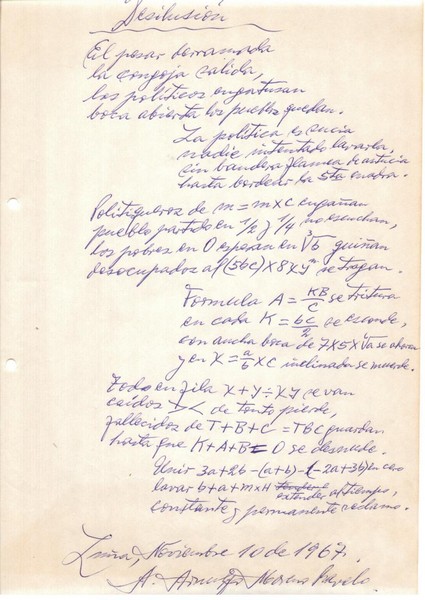 Desilusión
El pesar derramado
la congoja salida,
los políticos engatusan
boca abierta los pueblos quedan.
La política es sucia
nadie intentado lavarla,
sin bandera flamea de astucia
hasta bordear la 5ta cuadra.
Politiqueros de m = m x c engañan
pueblo partido en 1/2 y 1/4 no escuchan,
los pobres en 0 esperan en ∛b guiñan
desocupados al (5bc) x 8xyⁿ se tragan.
Formula A = KB/C se tritura
en cada K = bc/2 se esconde,
con ancha boca de 7x5x√a se ahorra
y en X = a/b x C inclinado se muerde.
Todo en fila x + y ÷ xy se van
caídos > < de tonto pierde,
fallecidos de T + B + C = TBC guardan
hasta que K + A + B = 0 se desnude.
Unir 3a + 2b - (a + b) - (-2a + 3b) en cero
lavar b + a + m x H extender al tiempo,
constante y permanente reclamo.
Lima, Noviembre 10 de 1967.
A. Moreno